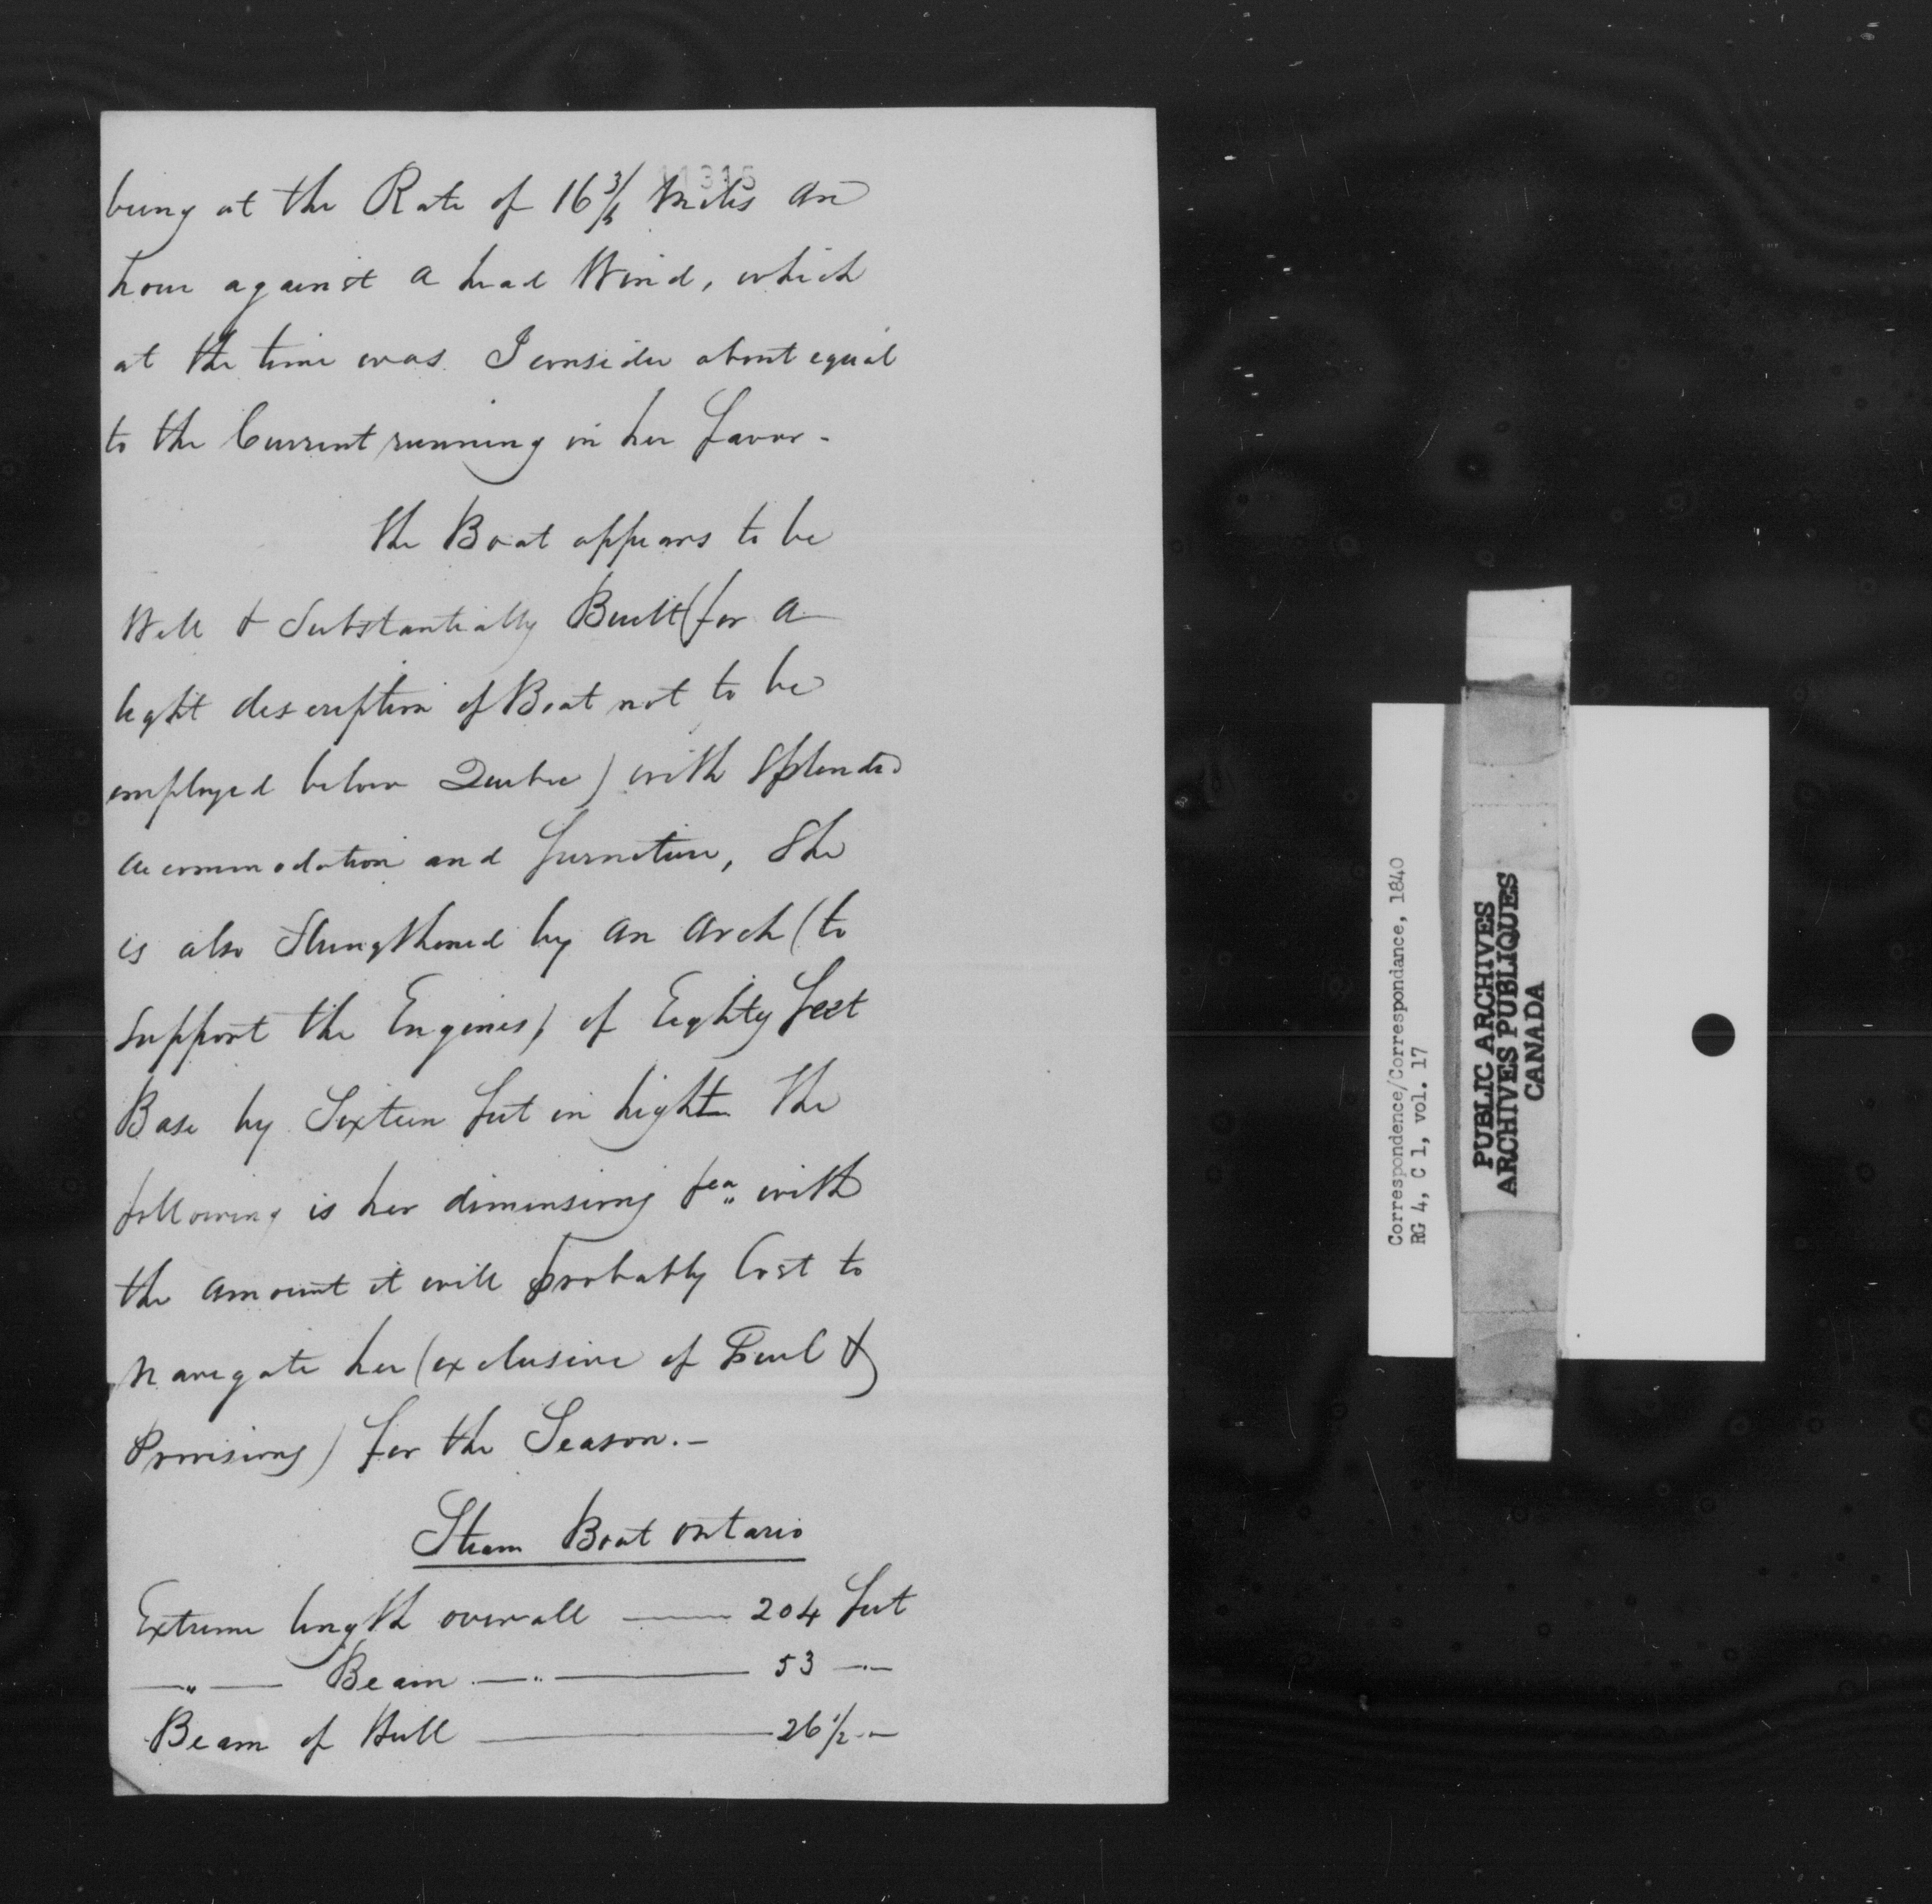 11315
being at the Rate of 16 3/4 Miles an
hour against a head Wind, which
at the time was I consider about equal
to the Current running in her favor -
the Boat appears to be
Well & Substantially Built (for a
light description of Boat not to be
employed below Quebec) with Splendid
accommodation and furniture, She
is also Strengthened by an Arch (to
Support the Engines) of Eighty feet
Base by Sixteen feet in hight The
following is her dimensions with
the amount it will probably Cost to
Navigate her (exclusive of Fuel &
Provisions) for the Season. -
Steam Boat Ontario
Extreme length over all —— 204 feet
—"— Beam —"—— 53 —"—
Beam of Hull —— 26 1/2 -"-
Correspondence/Correspondance, 1840
RG 4, C 1, vol. 17
PUBLIC ARCHIVES
ARCHIVES PUBLIQUES
CANADA